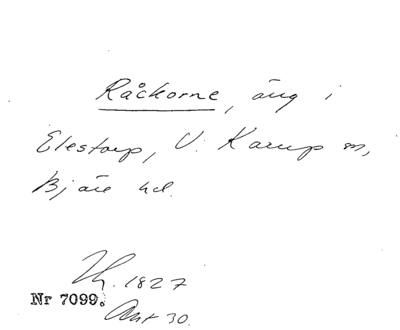 Råckorne, äng i
Elestorp, V. Karup sn,
Bjäre hd.
1827
Nr 7099.
Akt 30.